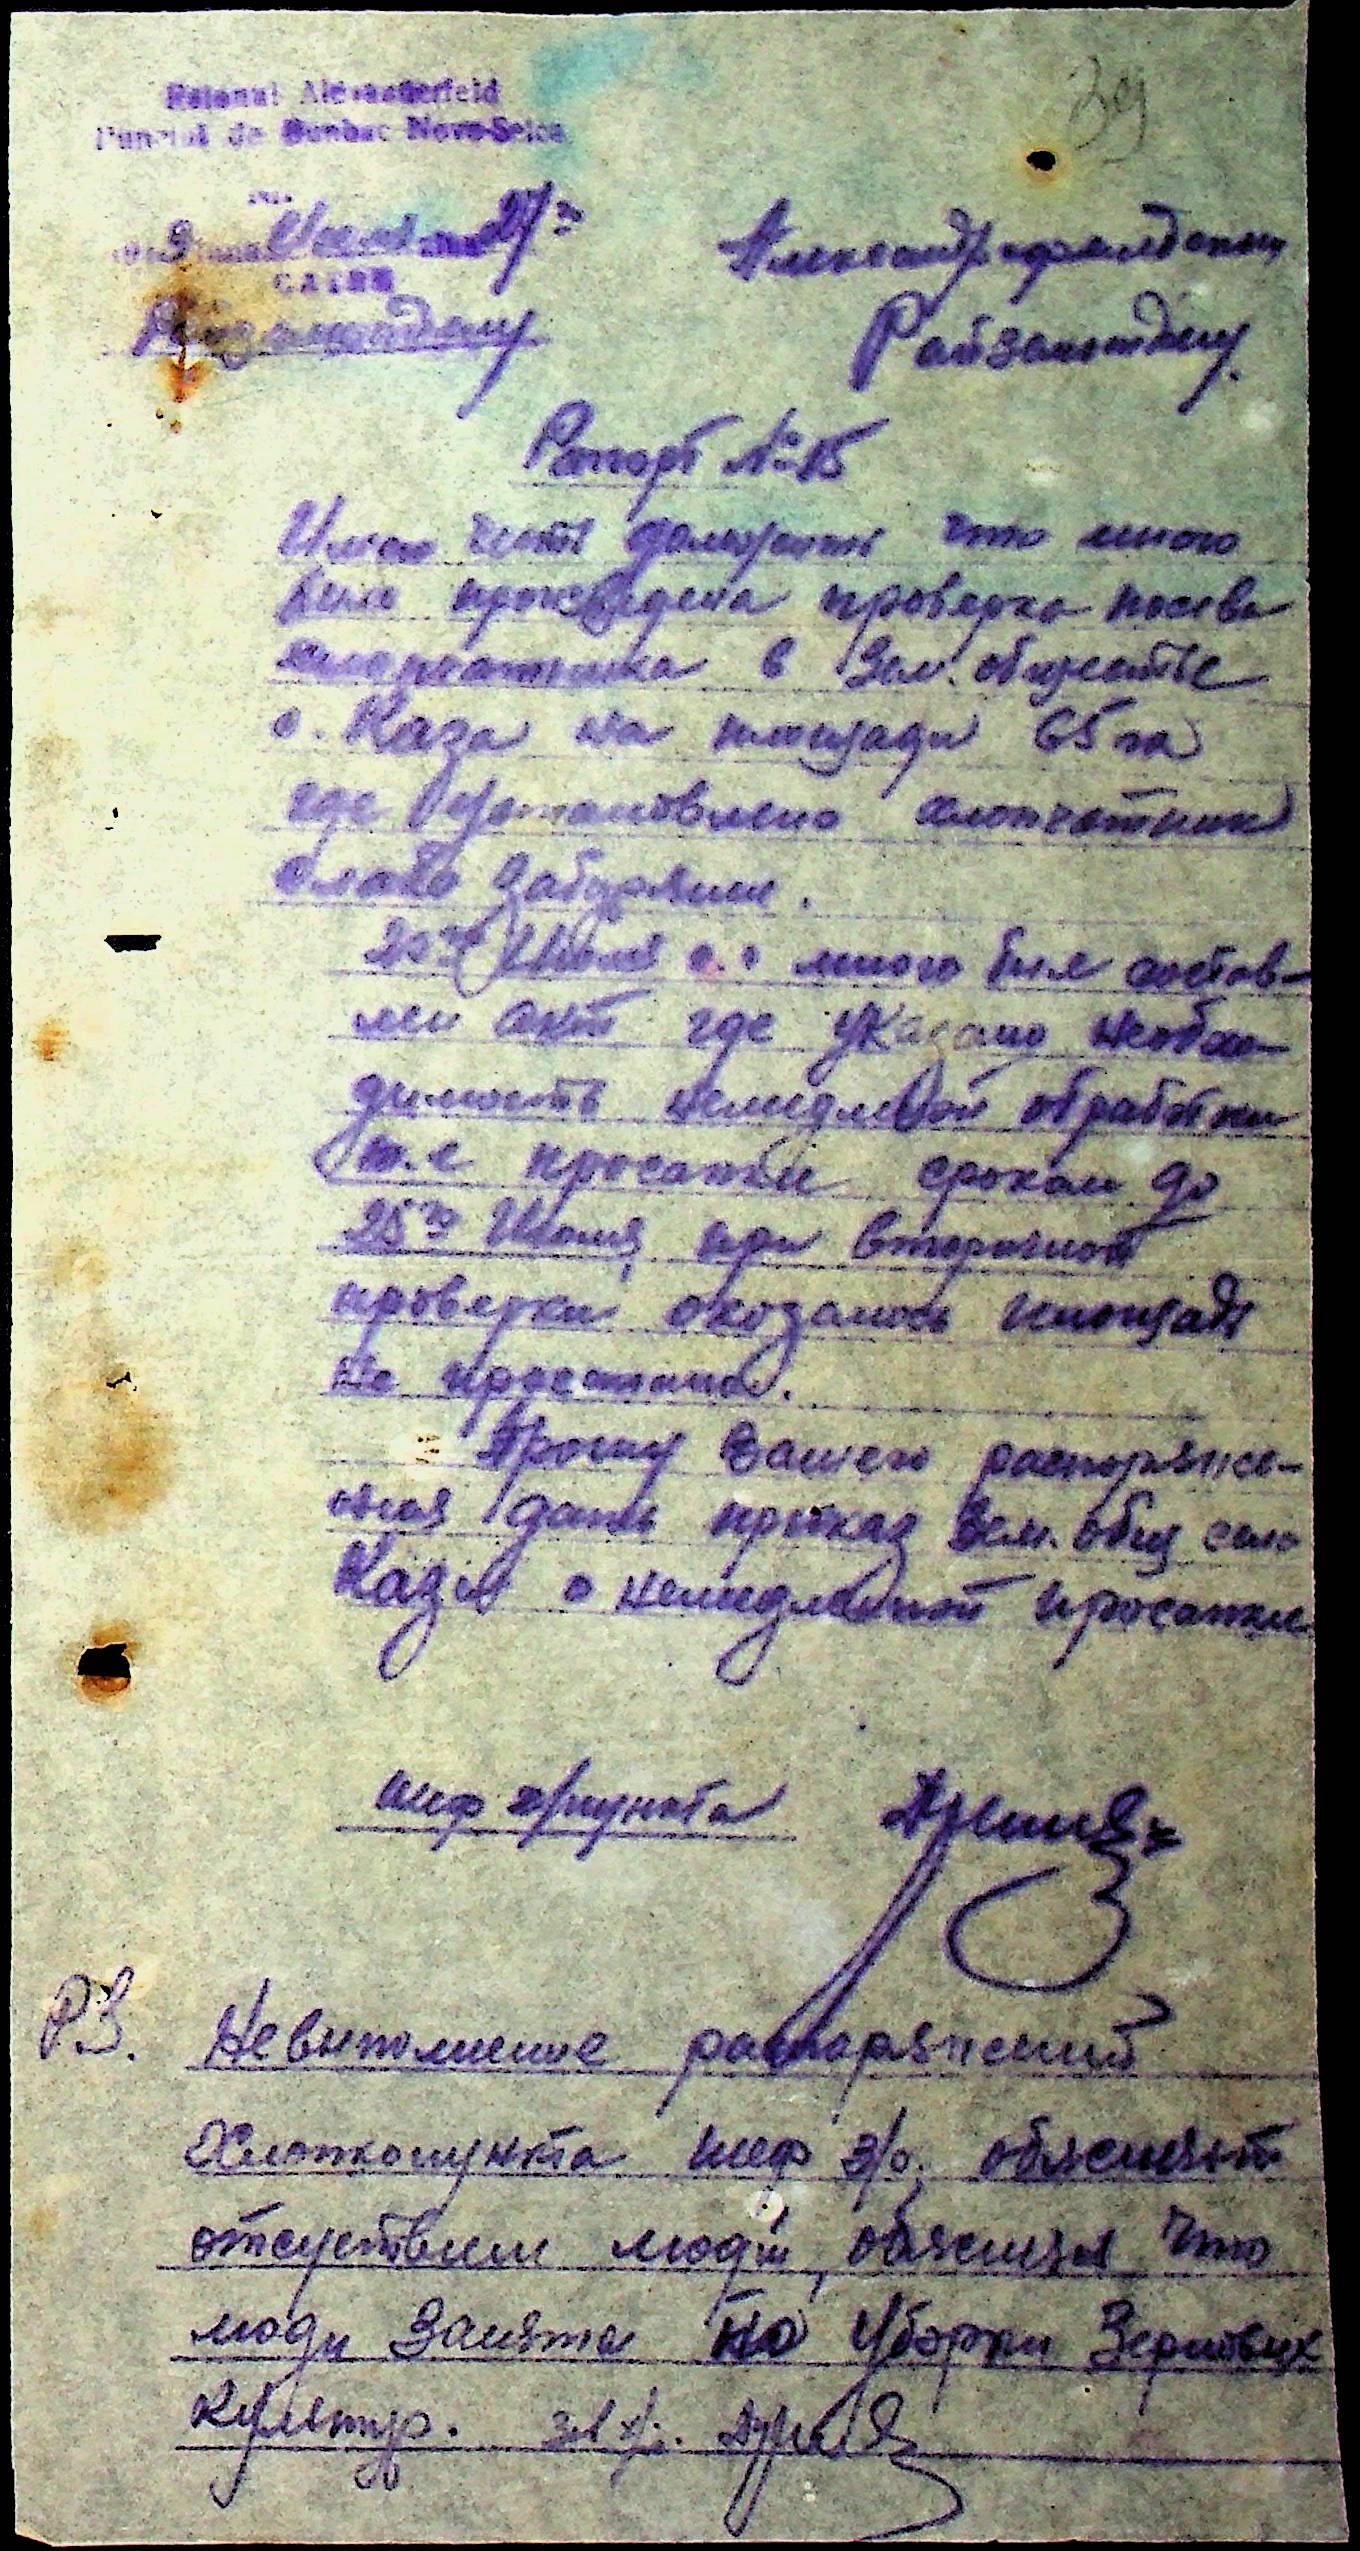 39
Raionul Alexanderfeld
Punctul de Bumbac Novo-Selca
27го
CĂTRE
Александрфельдскому
Райзамтдelу.
Рапорт № 15
Имею честь донести что мною
была произведена проверка посева
хлопчатника в Зем. обществе
с. Каза на площади 65 га
где установлено хлопчатник
слабо забурянин.
20го Июля с.г мною был состав-
лен акт где указано необхо-
димость немедленой обработки
т.е просапки сроком до
25го Июля, при вторичной
проверки оказалось площадь
не просапана.
Прошу Вашего распоряже-
ния дать приказ Зем. общ село
Каза о немедленной просапки
шеф х/пункта
Р.З. Невыполнение распаряжений
Хлопкопункта шеф з/о. обясняет
отсуствием людей, обясняя что
люди заняты по уборки Зерновых
культур.